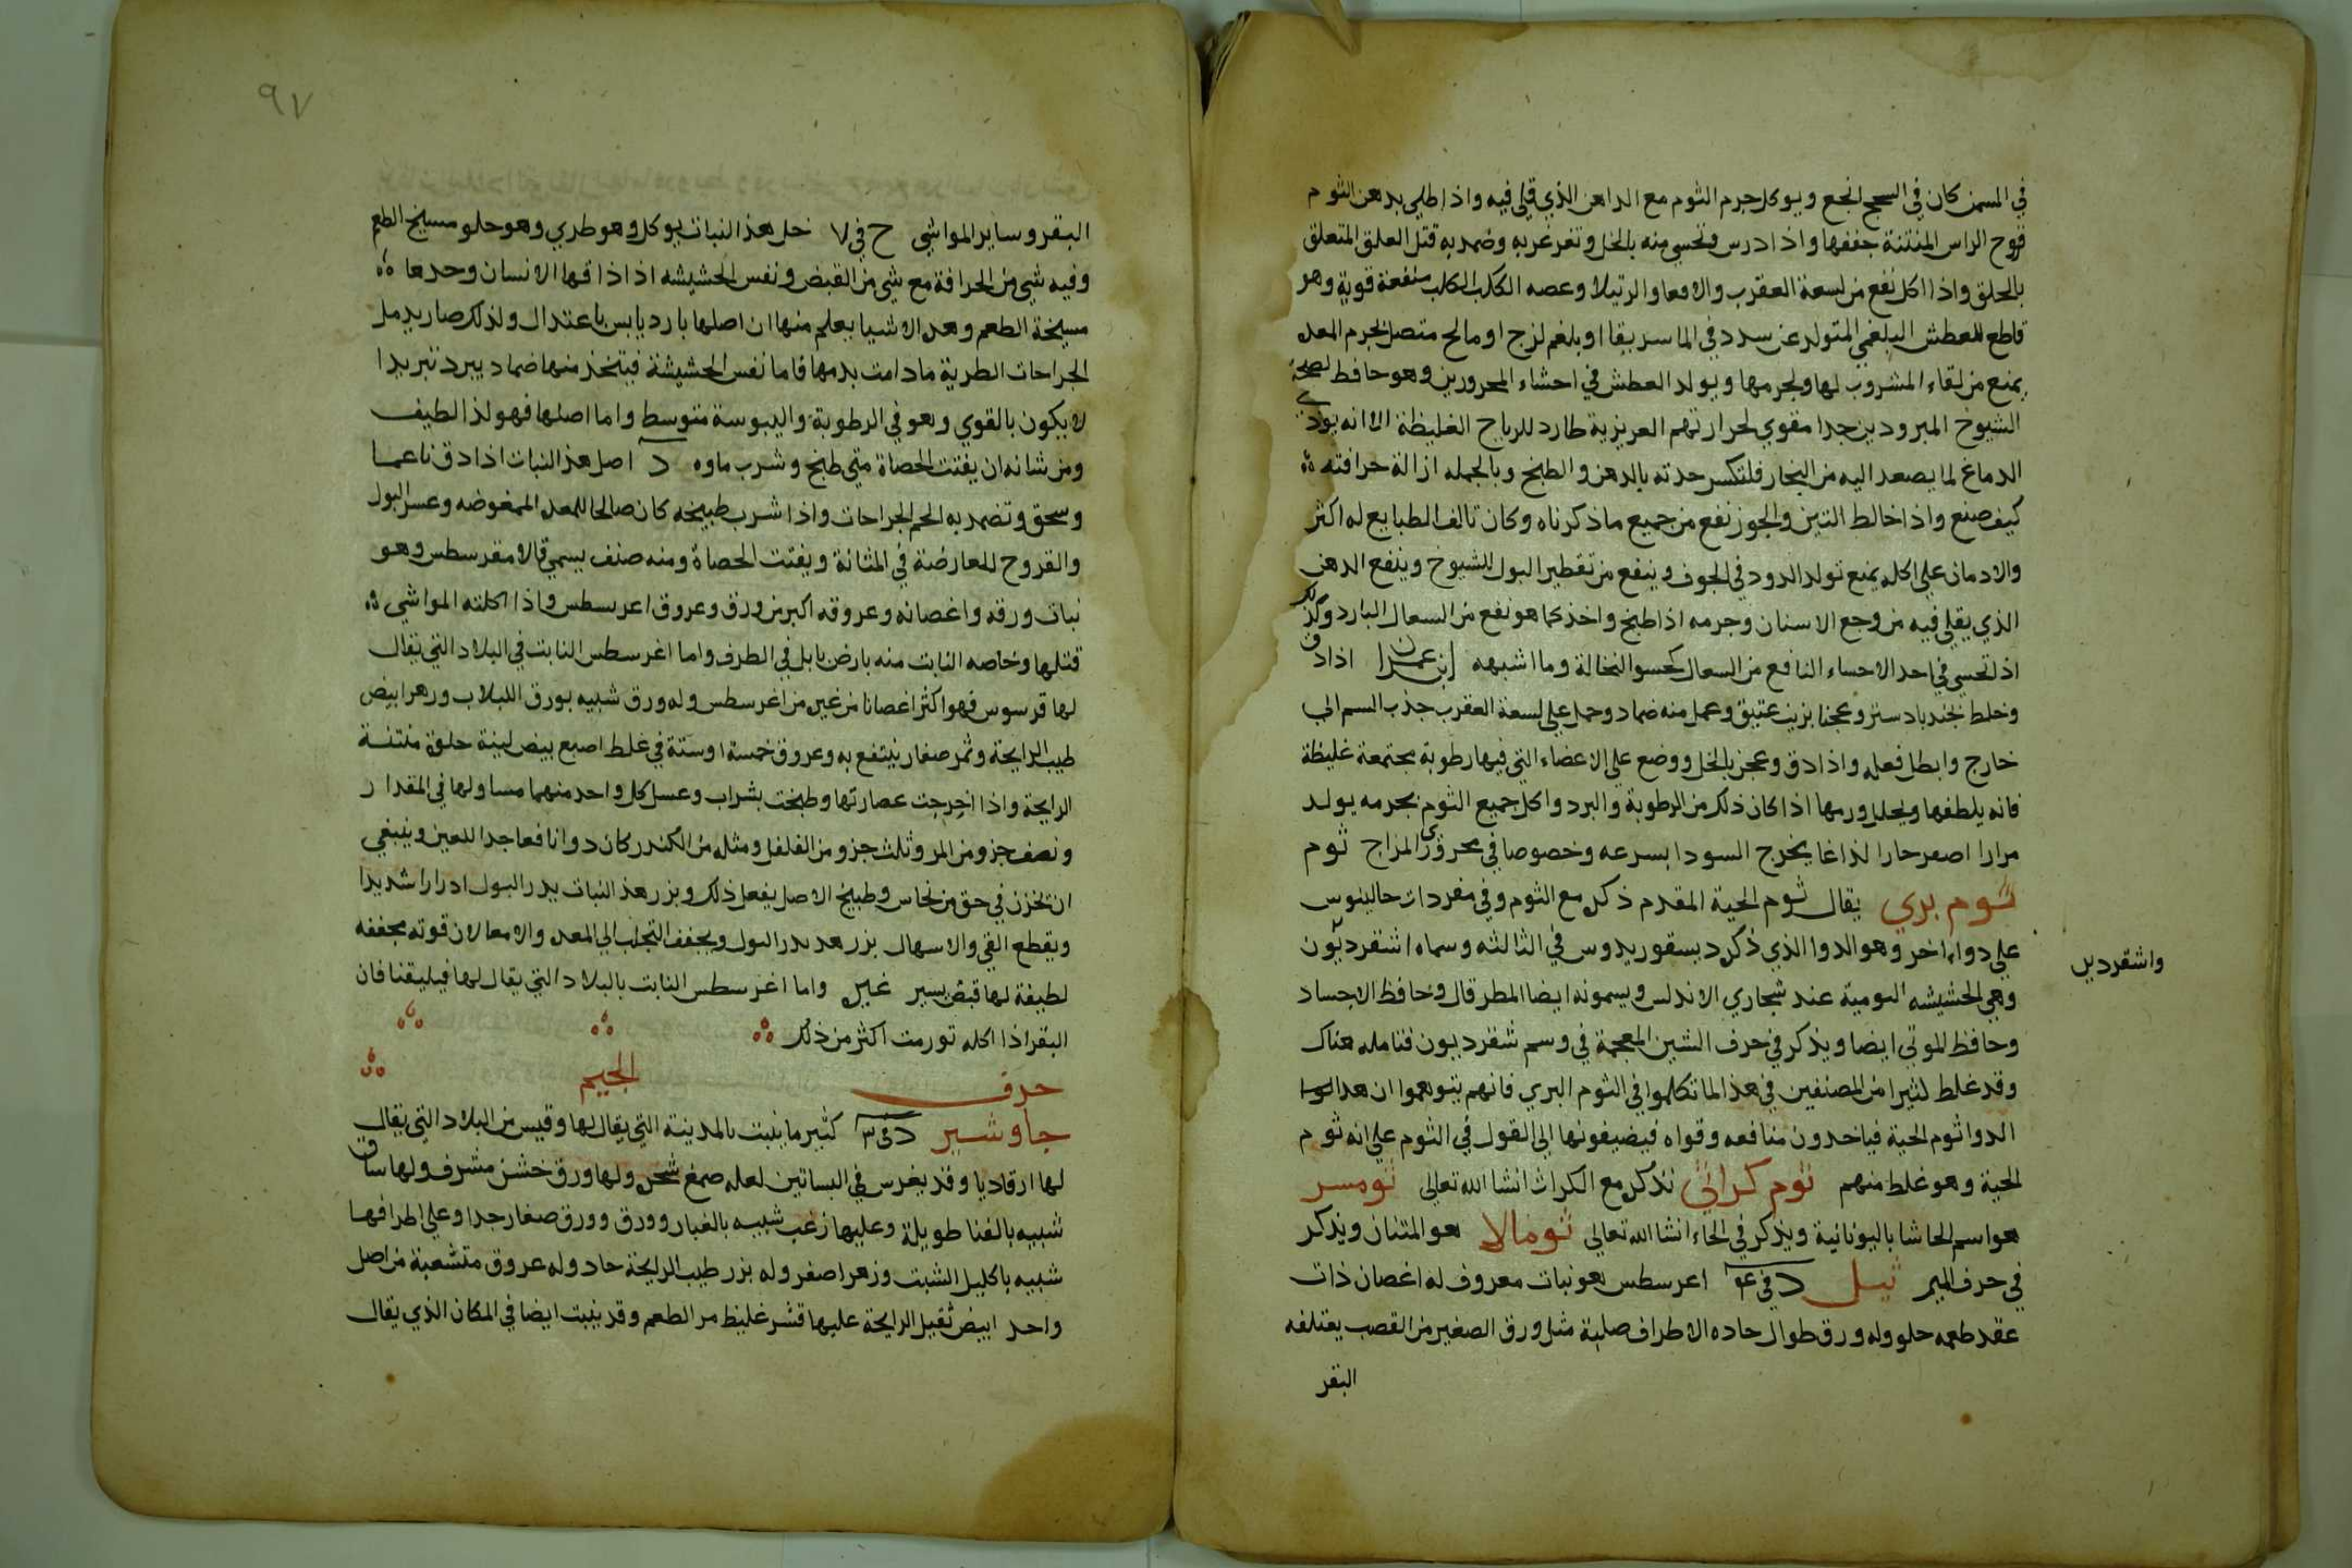 في السمن كان في السحج انجع ويوكل جرم الثوم مع الداهن الذي قلي فيه واذا طلي بدهن الثوم
قروح الراس المنتنة جففها واذا درس وتحسي منه بالخل وتغرغر به وضمد به قتل العلق المتعلق
بالحلق واذا اكل نفع من لسعة العقرب والافعا والرتيلا وعصه الكلب الكلب منفعة قوية وهو
قاطع للعطش البلغمي المتولد عن سدد في الماسريقا او بلغم لزج او مالح متصل بجرم المعده
يمنع من لقاء المشروب لها ولجرمها ويولد العطش في احشاء المحرورين وهو حافط لصحة
الشيوخ المبرودين جدا مقوي لحرارتهم العريزية طارد للرياح الغليظة الا انه يوذي
الدماغ لما يصعد اليه من البخار فلتكسر حدته بالدهن والطبخ وبالجمله ازالة حرافته
كيف صنع واذا خالط التين والجوز نفع من جميع ماذكرناه وكان تالف الطبايع له اكثر
والادمان على اكله يمنع تولد الدود في الجوف وينفع من تقطير البول للشيوخ وينفع الدهن
الذي يقلي فيه من وجع الاسنان وجرمه اذا طبخ واخذ كما هو نفع من السعال البارد وكذلك
اذا تحسي في احد الاحساء النافع من السعال كحسو النخالة وما اشبهه ابن عمران اذا دق
وخلط بجندبادستر وعجنا بزيت عتيق وعمل منه ضماد وحمل على لسعة العقرب جذب السم الى
خارج وابطل فعله واذا دق وعجن بالخل ووضع على الاعضاء التي فيها رطوبة مجتمعة غليظة
فانه يلطفها ويحلل ورمها اذا كان ذلك من الرطوبة والبرد واكل جميع الثوم بجرمه يولد
مرارا اصعر حارا لذاعا يخرج السودا بسرعه وخصوصا في محروري المزاج ثوم
ثوم بري يقال ثوم الحية المقدم ذكره مع الثوم وفي مفردات جالينوس
على دواء اخر وهو الدوا الذي ذكره ديسقوريدوس في الثالثه وسماه اشقرديون
واشقرديں
وهي الحشيشه الىوميه عند شجاري الاندلس ويسمونه ايضا المطرقال وحافظ الاجساد
وحافظ الموتي ايضا ويذكر في حرف الشين المعجمة في وسم شقرديون فتامله هناك
وقد غلط كثيرا من المصنفين في هذا لما تكلموا في الثوم البري فانهم يتوهموا ان هدا
الدوا ثوم الحية فياخدون منافعه وقواه فيضيفونها الى القول في الثوم على انه ثوم
الحية وهو غلط منهم ثوم كراثي نذكره مع الكراث انشا الله تعالى ثومسر
هو اسم الحاشا باليونانية ويذكر في الحاء انشا الله تعالى ثومالا هو المتنان ويذكر
في حرف الميم ثيل د في ٤ اعرسطس هو نبات معروف له اغصان ذات
عقد طعمه حلو وله ورق طوال حاده الاطراف صلبة مثل ورق الصغير من القصب يعتلفه
البقر
٩٧
البقر وساير المواشي ح في ٧ خل هذا النبات يوكل وهو طري وهو حلو مسيخ الطعم
وفيه شي من الحرافة مع شي من القبض ونفس الحشيشه اذا ذاقها الانسان وحدها
مسيخة الطعم وهده الاشيا يعلم منها ان اصلها بارد يابس باعتدال ولذلك صار يدمل
الجراحات الطرية ما دامت بدمها فاما نفس الحشيشة فيتخذ منها ضماد يبرد تبريدا
لا يكون بالقوي وهو في الرطوبة واليبوسة متوسط واما اصلها فهو لذا لطيف
ومن شانه ان يفتت الحصاة متي طبخ وشرب ماوه د اصل هذا النبات اذا دق ناعما
وسحق وتضمد به الحم الجراحات واذا شرب طبيخه كان صالحا للمعده الممغوضه وعسر البول
والقروح للعارضة في المثانة ويفتت الحصاة ومنه صنف يسمي قالامقرسطس وهو
نبات ورقه واغصانه وعروقه اكبر من ورق وعروق اعرسطس واذا اكلته المواشي
قتلها وخاصه النابت منه بارض بابل في الطرف واما اغرسطس النابت في البلاد التي يقال
لها قرسوس فهو اكثر اغصانا من غيره من اغرسطس وله ورق شبيه بورق اللبلاب وزهر ابيض
طيب الرايحة وثمر صغار ينتفع به وعروق خمسة او ستة في غلط اصبع بيض لينة حلوة منتنة
الرايحة واذا اخرجت عصارتها وطبخت بشراب وعسل كل واحد منهما مساو لها في المقدار
ونصف جزو من المر وثلث جزو من الفلفل ومثله من الكندر كان دوا نافعا جدا للعين وينبغي
ان تخزن في حق من نحاس وطبيخ الاصل يفعل ذلك وبزر هذا النبات يدر البول ادرارا شديدا
ويقطع القي والاسهال بزر هده يدر البول ويجفف التجلب الى المعده والامعا لان قوته مجففه
لطيفة لها قبض يسير غيره واما اغرسطس النابت بالبلاد التي يقال لها فيليقنا فان
البقر اذا اكله تورمت اكثر من ذلك
حرف الجيم
جاوشير د في ٣ كثير ما ينبت بالمدينة التي يقال لها وقيس من البلاد التي يقال
لها ارقاديا وقد يغرس في البساتين لعله صمغ شجره ولها ورق خشن مشرف ولها ساق
شبيه بالفنا طويلة وعليها زغب شبيه بالغبار وورق وورق صغار جدا وعلى اطرافها
شبيه باكليل الشبت وزهر اصفر وله بزر طيب الرايحة حاد وله عروق متشعبة من اصل
واحد ابيض ثقيل الرايحة عليها قشر غليظ مر الطعم وقد ينبت ايضا في المكان الذي يقال